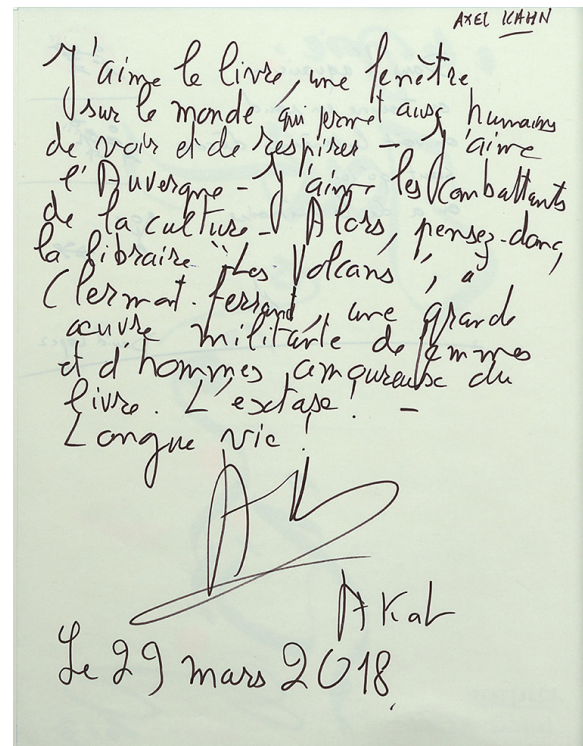 AXEL KAHN
J'aime le livre, une fenêtre
sur le monde qui permet aux humains
de voir et de respirer – J'aime
l'Auvergne – J'aime les combattants
de la culture – Alors, pensez-donc,
la libraire "Les Volcans", à
Clermont-Ferrand, une grande
œuvre militante de femmes
et d'hommes amoureux du
livre. L'extase! –
Longue vie!
AK
A Kahn
Le 29 mars 2018.